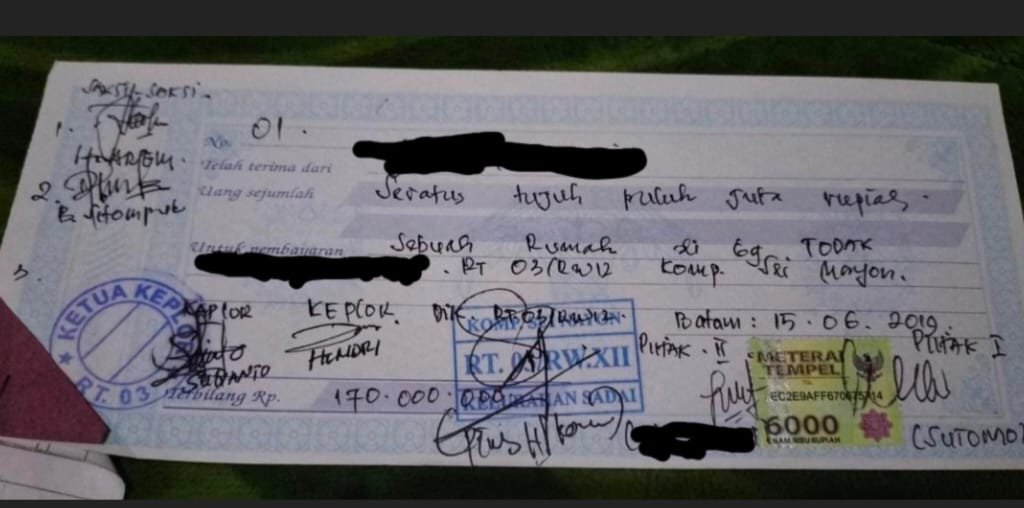 SAKSI-SAKSI.
1.
2.
B. Sitompul
3
No. 01.
Telah terima dari
Uang sejumlah Seratus tujuh puluh juta rupiah.
Untuk pembayaran Sebuah Rumah di Gg. TODAK
RT 03/RW12 Komp. Sri Monjon.
KETUA KEPLOK
RT. 03
KAPLOR KEPLOK. RT.03/RW12.
HENDRI
SUPANTO
RT. RW.XII
KELURAHAN SADAI
Batam: 15.06.2019.
PIHAK. II PIHAK I
METERAI
TEMPEL
6000
ENAM RIBU RUPIAH
Terbilang Rp. 170.000.000
(SUTOMO)